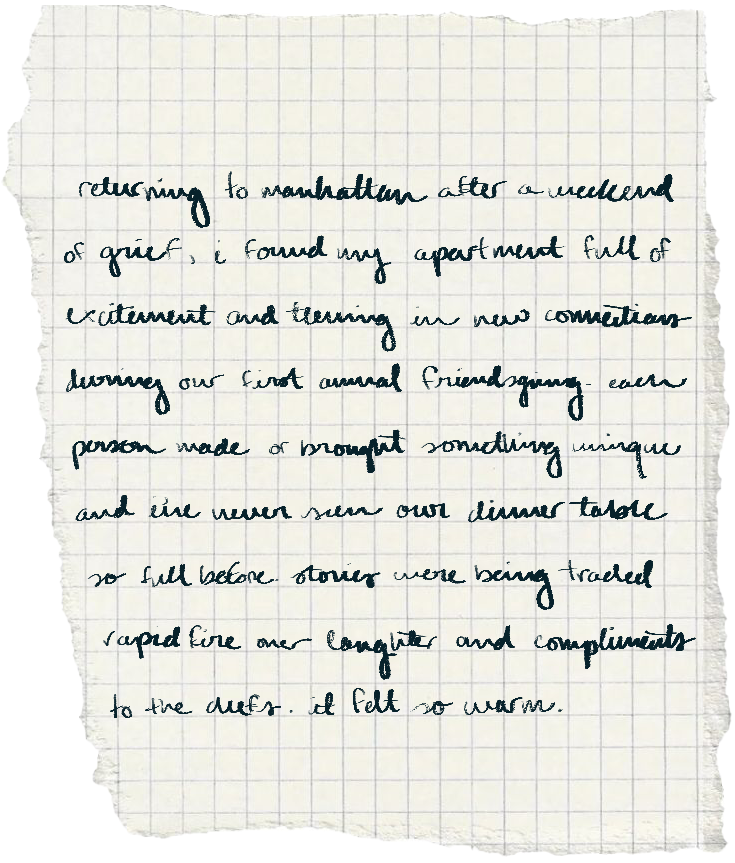 returning to manhattan after a weekend
of grief, i found my apartment full of
excitement and teeming in new connections
during our first annual friendsgiving. each
person made or brought something unique
and i've never seen our dinner table
so full before. stories were being traded
rapid fire over laughter and compliments
to the chefs. it felt so warm.